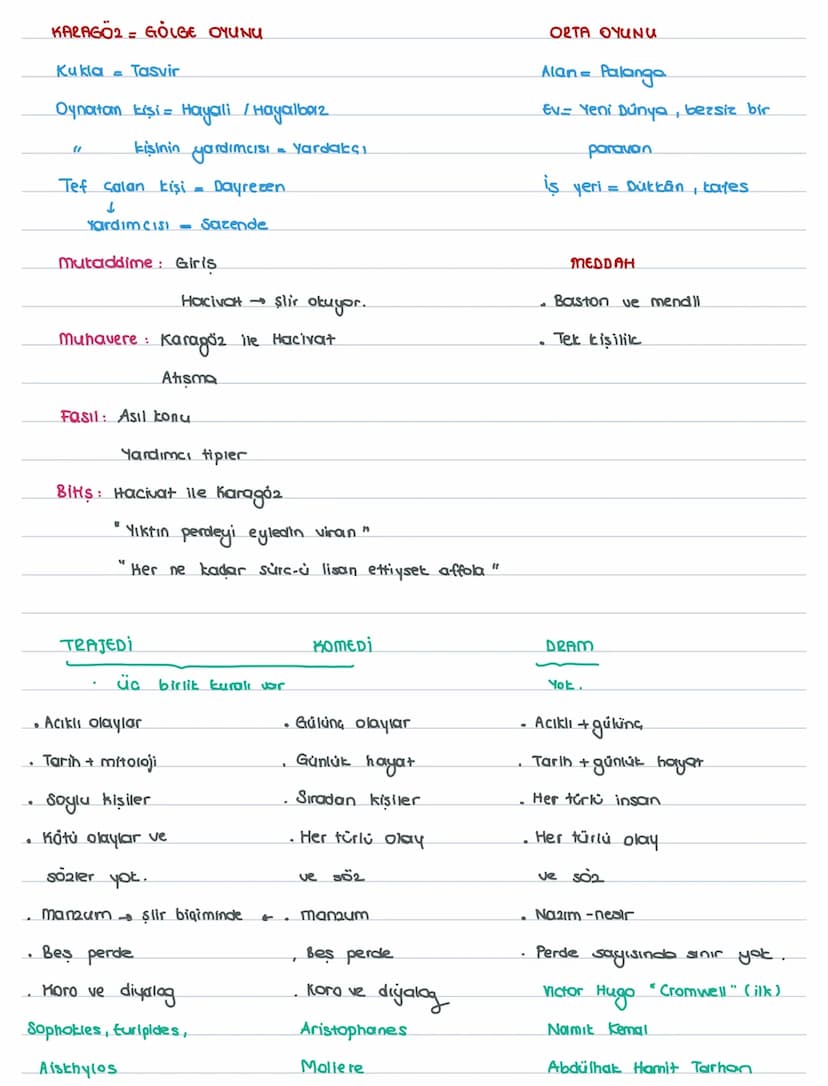 KARAGÖZ = GÖLGE OYUNU
Kukla = Tasvir
Oynatan kişi = Hayali / Hayalbaz
" kişinin yardımcısı = Yardakçı
Tef çalan kişi = Dayrezen
↓
Yardımcısı = Sazende
Mukaddime : Giriş
Hacivat → şiir okuyor.
Muhavere : Karagöz ile Hacivat
Atışma
Fasıl : Asıl konu
Yardımcı tipler
Bitiş : Hacivat ile Karagöz
" Yıktın perdeyi eyledin viran "
" Her ne kadar sürc-ü lisan ettiysek affola "
ORTA OYUNU
Alan = Palanga
Ev = Yeni Dünya , bezsiz bir
paravan
İş yeri = Dükkân , kafes
MEDDAH
. Baston ve mendil
. Tek kişilik
TRAJEDİ KOMEDİ DRAM
. üç birlik kuralı var Yok .
. Acıklı olaylar . Gülünç olaylar . Acıklı + gülünç
. Tarih + mitoloji . Günlük hayat . Tarih + günlük hayat
. Soylu kişiler . Sıradan kişiler . Her türlü insan
. Kötü olaylar ve . Her türlü olay . Her türlü olay
sözler yok. ve söz ve söz
. Manzum → şiir biçiminde ← . manzum . Nazım - nesir
. Beş perde . Beş perde . Perde sayısında sınır yok .
. Koro ve diyalog . Koro ve diyalog Victor Hugo "Cromwell" (ilk)
Sophokles, Euripides, Aristophanes Namık Kemal
Aiskhylos Moliere Abdülhak Hamit Tarhan